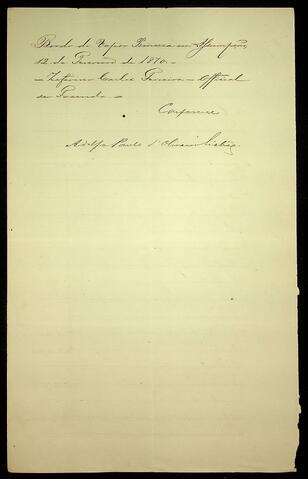 Bordo do Vapor Princeza em Assumpção,
12 de Fevereiro de 1870. —
— Zeferino Carlos Ferreira — Official
de Fazenda —
Conferere
Adolpho Paulo d'Oliveira Lisboa.